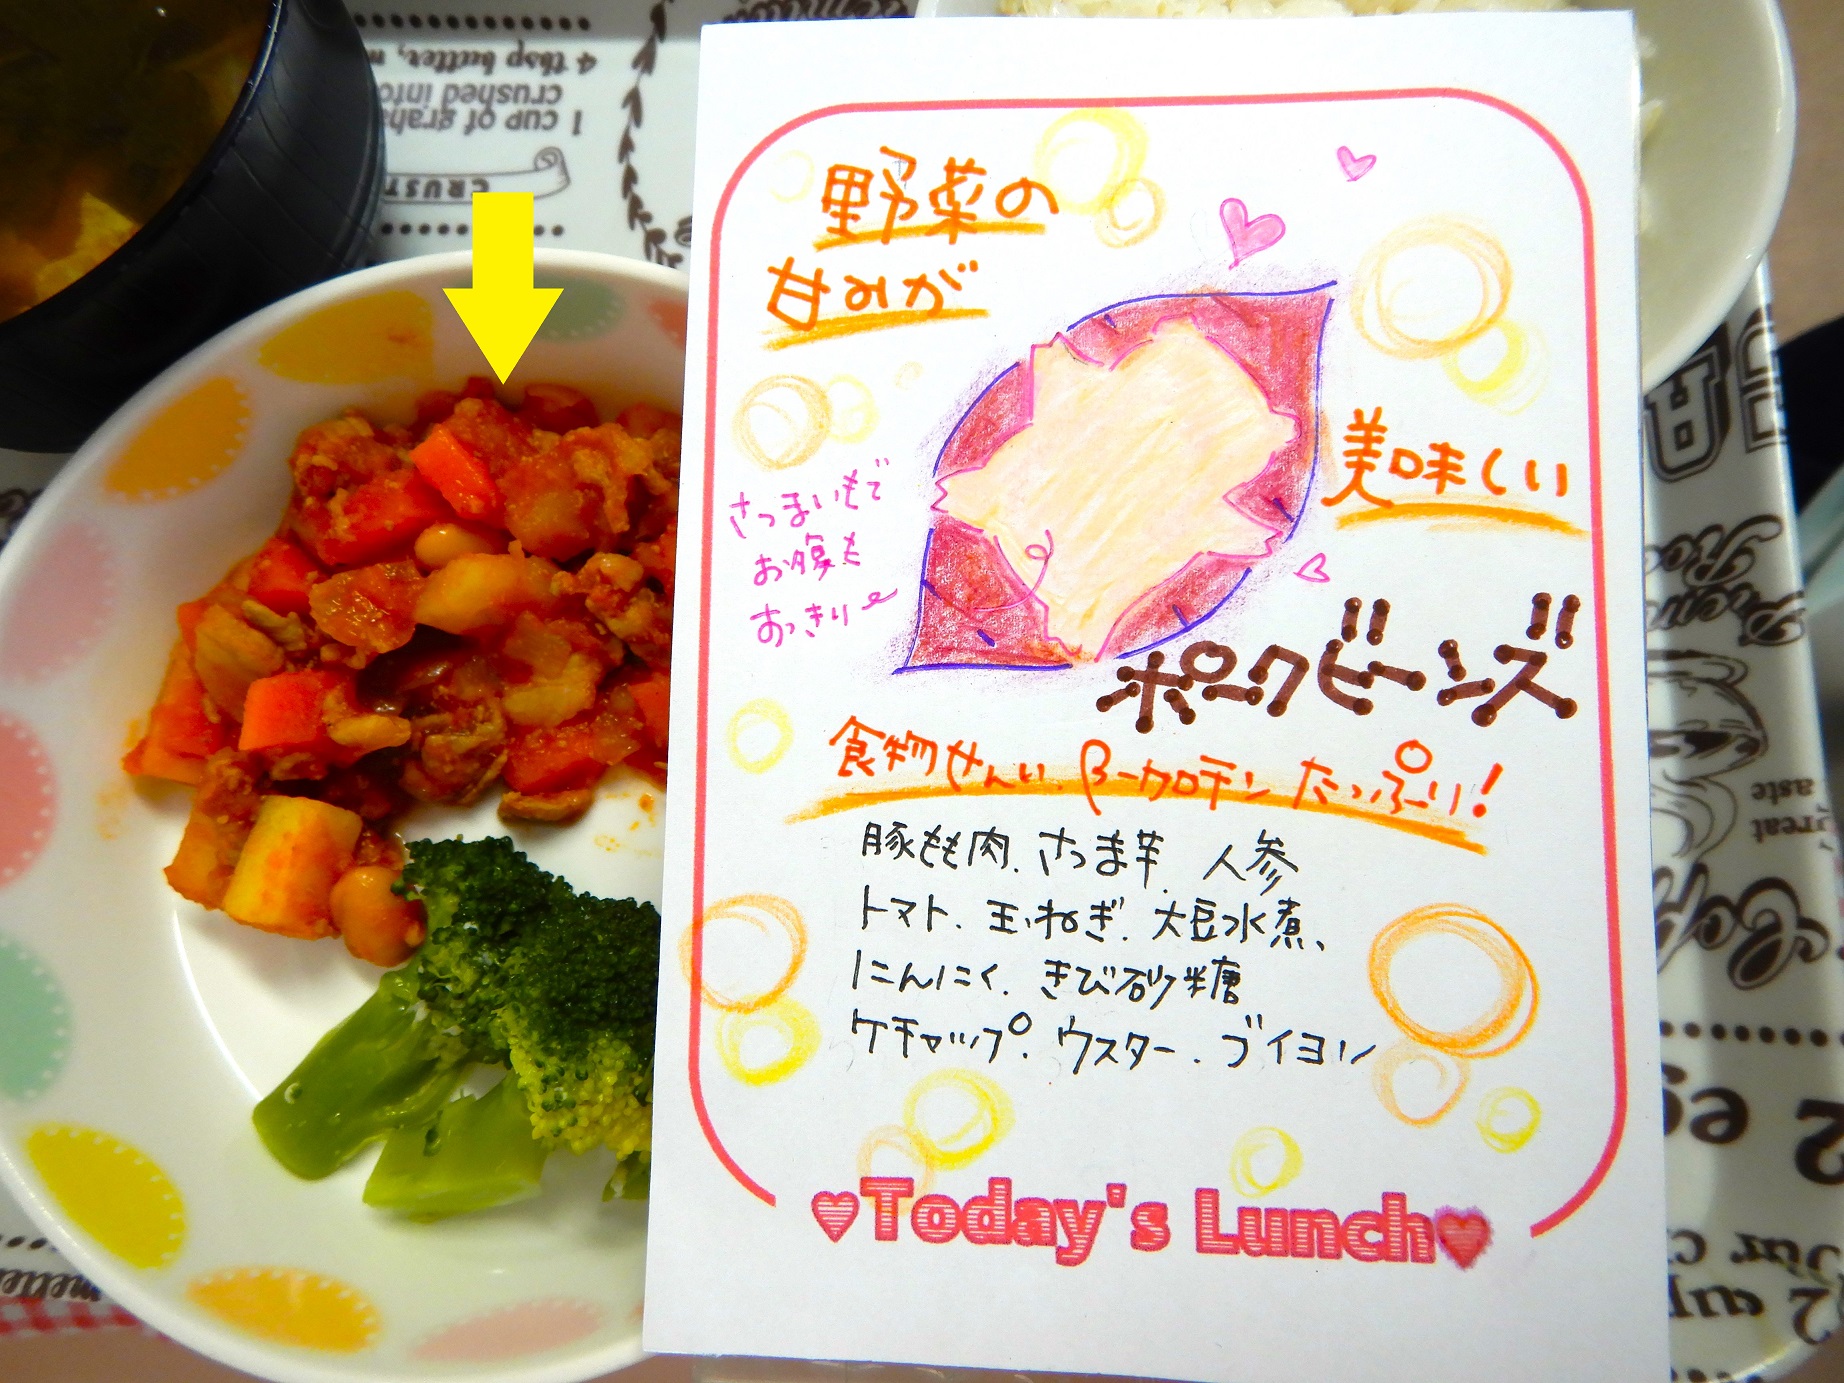 野菜の
甘みが
美味しい
さつまいもで
お腹も
すっきり
ポークビーンズ
食物せんい、β-カロテン たっぷーり!
豚もも肉、さつま芋、人参
トマト、玉ねぎ、大豆水煮、
にんにく、きび砂糖
ケチャップ、ウスター、ブイヨン
Today's Lunch
4 tbsp butter, m
crushed into
1 cup of graha
CRUST